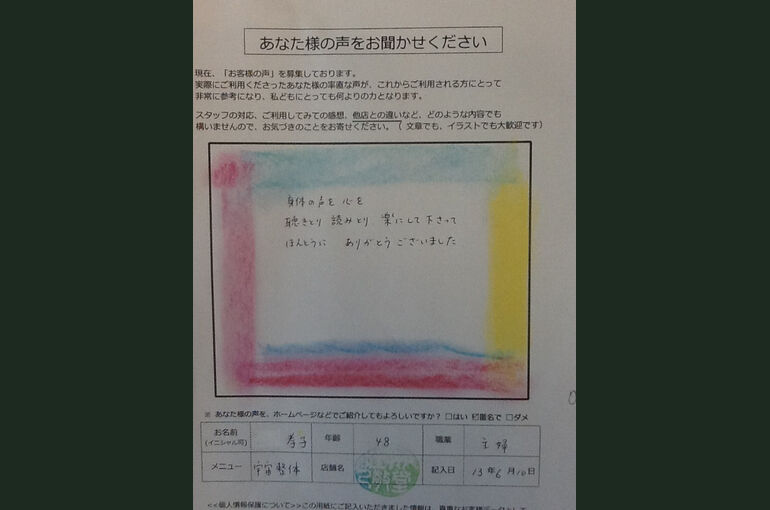 あなた様の声をお聞かせください
現在、「お客様の声」を募集しております。
実際にご利用くださったあなた様の率直な声が、これからご利用される方にとって
非常に参考になり、私どもにとっても何よりの力となります。
スタッフの対応、ご利用してみての感想、他店との違いなど、どのような内容でも
構いませんので、お気づきのことをお寄せください。（ 文章でも、イラストでも大歓迎です）
身体の声を 心を
聴きとり 読みとり 楽にして下さって
ほんとうに ありがとうございました
※ あなた様の声を、ホームページなどでご紹介してもよろしいですか？ □はい ☑匿名で □ダメ
お名前 (イニシャル可) 孝子 年齢 48 職業 主婦
メニュー 宇宙整体 店舗名 記入日 13 年 6 月 10 日
<<個人情報保護について>>この用紙にご記入いただきました情報は、貴重なお客様データとして